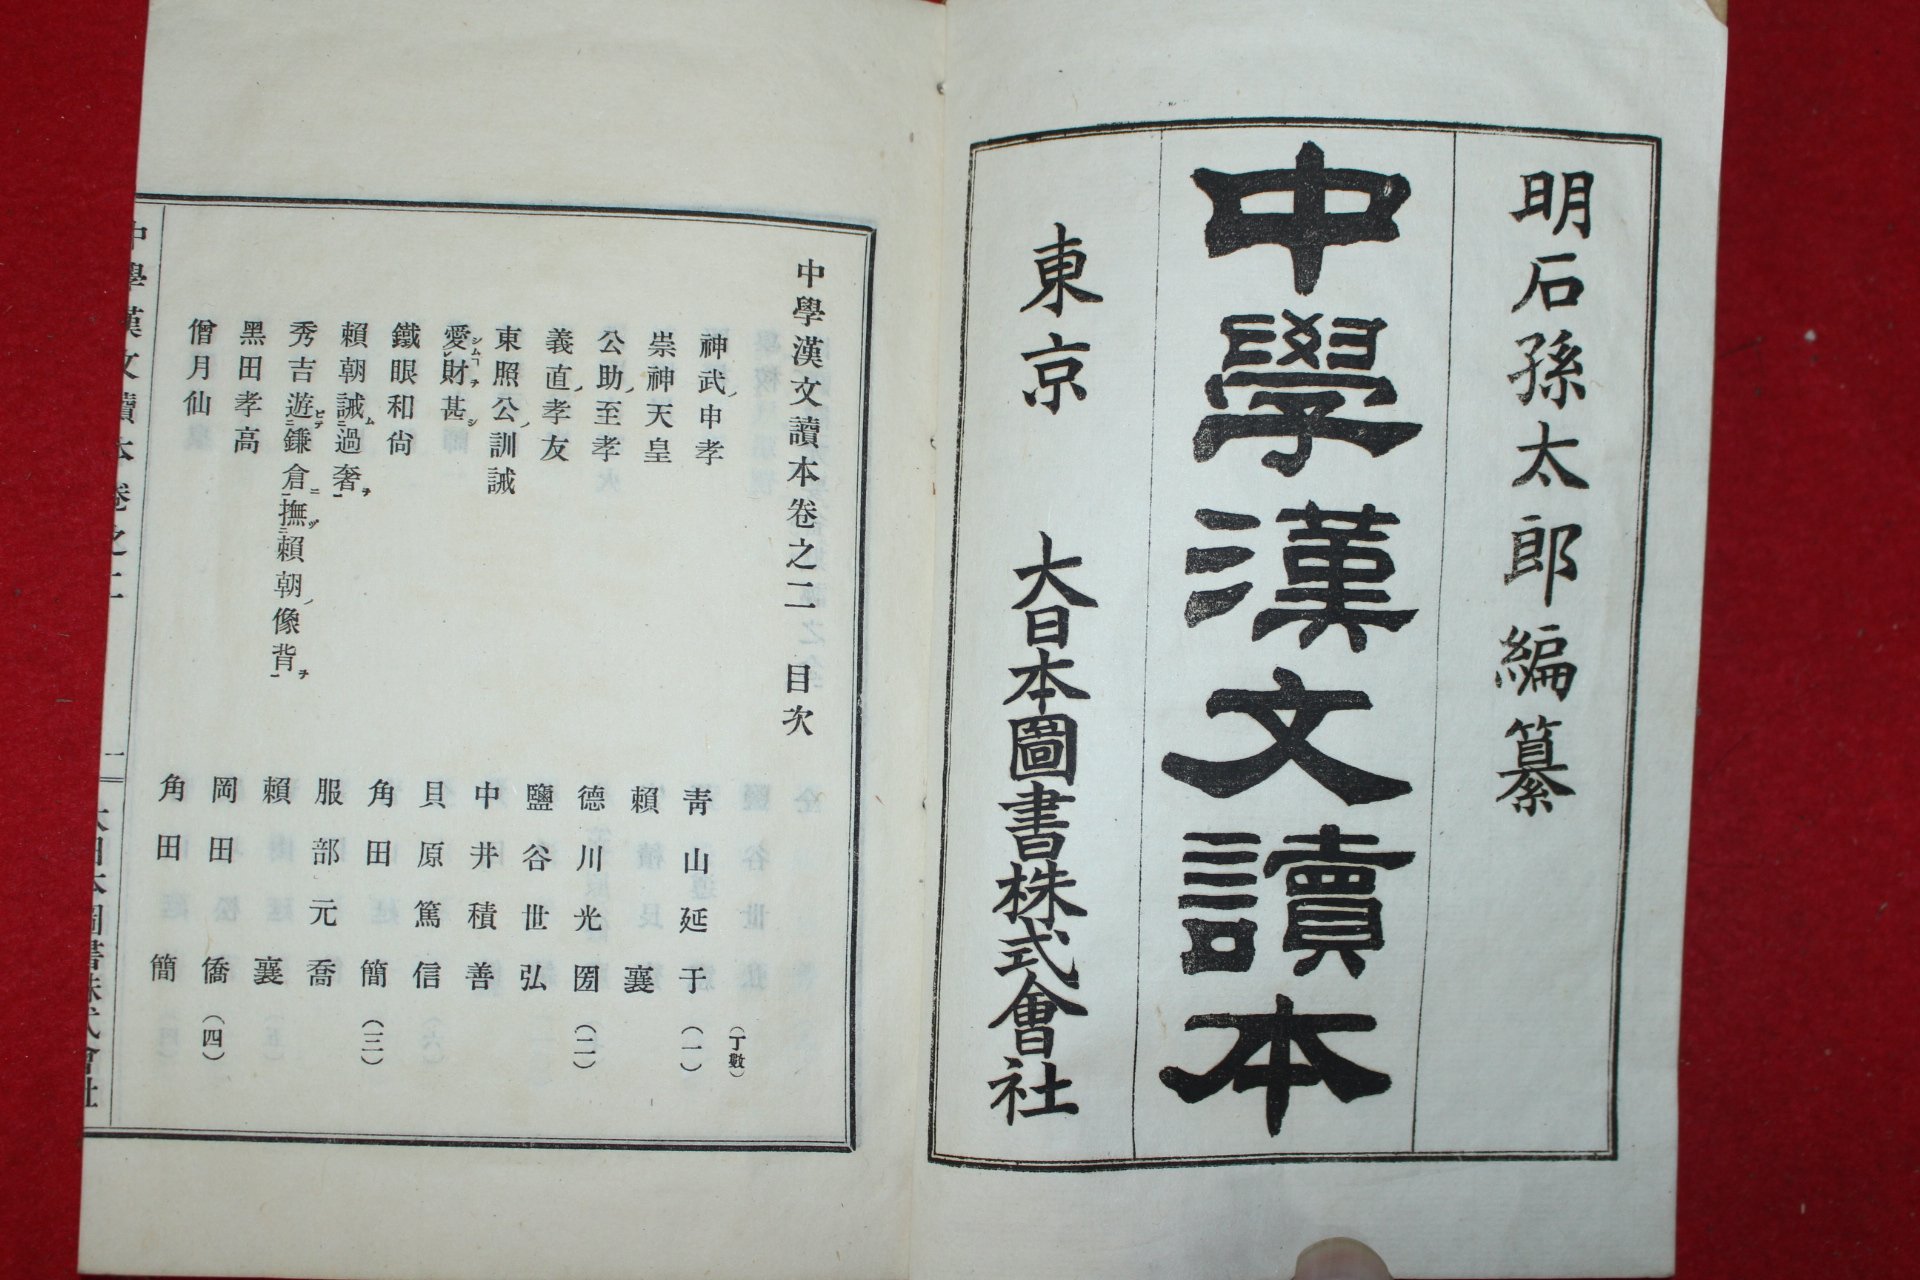 明石孫太郎編纂
中學漢文讀本
東京 大日本圖書株式會社
中學漢文讀本卷之二 目次
(丁數)
神武ノ申孝 靑山延于 (一)
崇神天皇 賴襄
公助ノ至孝 德川光圀 (二)
義直ノ孝友 鹽谷世弘
東照公ノ訓誡 中井積善
愛シムヿ財ヲ甚シ 貝原篤信
鐵眼和尙 角田簡 (三)
賴朝誡ム過奢ヲ 服部元喬
秀吉遊ビテ鎌倉ニ撫ヅ賴朝ノ像背ヲ 賴襄
黑田孝高 岡田僑 (四)
僧月仙 角田簡
中學漢文讀本卷之二 一 大日本圖書株式會社